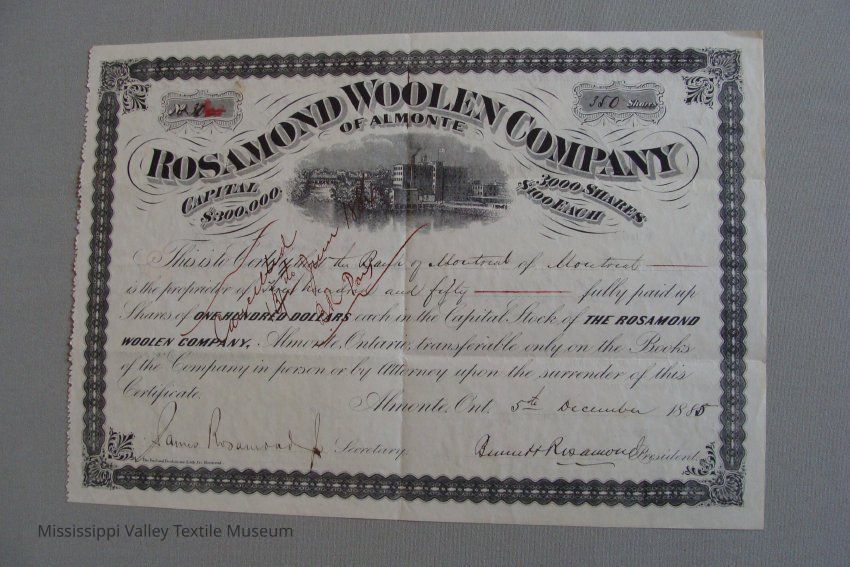 350 Shares
ROSAMOND WOOLEN COMPANY
OF ALMONTE
CAPITAL
$300,000
3000 SHARES
$100 EACH
This is to Certify that the Bank of Montreal of Montreal
is the proprietor of Three hundred and fifty fully paid up
Shares of ONE HUNDRED DOLLARS each in the Capital Stock of THE ROSAMOND
WOOLEN COMPANY, Almonte, Ontario, transferable only on the Books
of the Company in person or by Attorney upon the surrender of this
Certificate.
Almonte, Ont. 5th December 1885
Cancelled
James Rosamond Jr Secretary.
Bennett Rosamond President.
Mississippi Valley Textile Museum